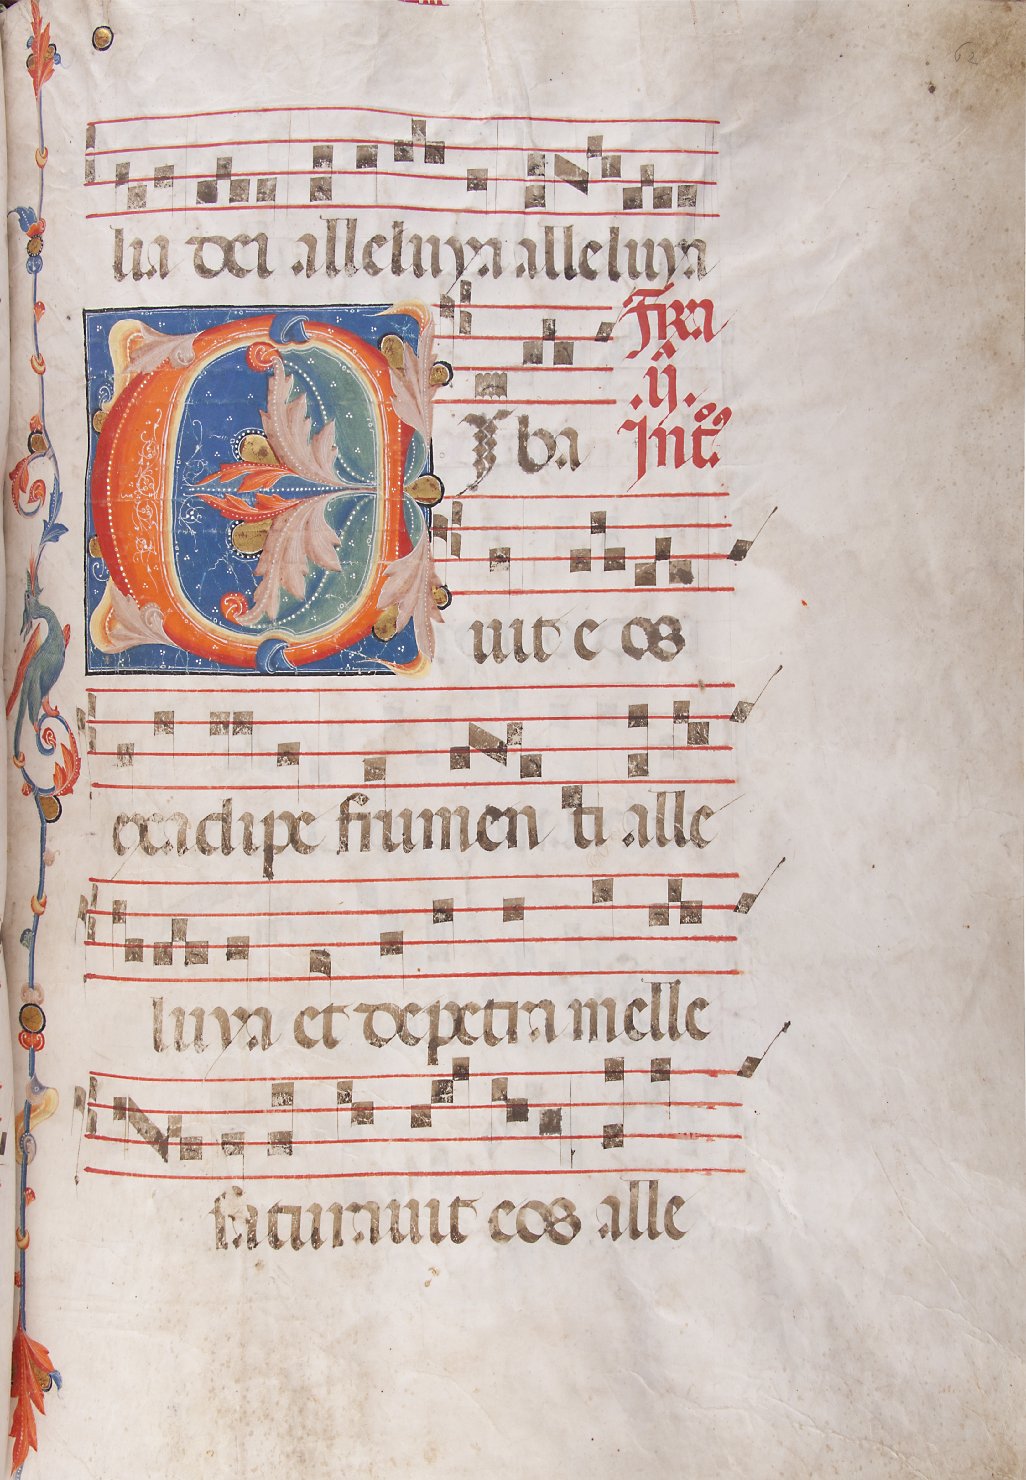 62
lia dei alleluya alleluya
Fra
.ij.
Intᵒ.
Cyba
uit e os
exadipe frumen ti alle
luya et depetra melle
saturauit eos alle